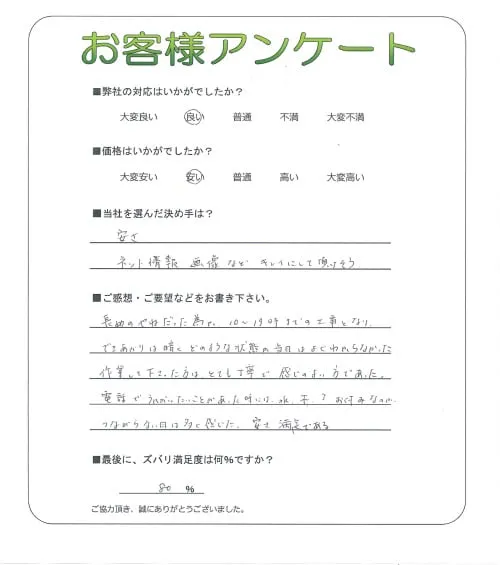 お客様アンケート
■弊社の対応はいかがでしたか?
大変良い 良い 普通 不満 大変不満
■価格はいかがでしたか?
大変安い 安い 普通 高い 大変高い
■当社を選んだ決め手は?
安さ
ネット情報 画像など キレイにして頂けそう
■ご感想・ご要望などをお書き下さい。
長めのやねだった為か、10〜19時までの工事となり、
できあがりは暗く どのような状態か当日はよくわからなかった
作業して下さった方は、とても丁寧で 感じのよい方であった。
電話でうかがいたいことがあった時には、水、木、? お休みなのか
つながらない日は多く感じた。 安さ 満足である
■最後に、ズバリ満足度は何%ですか?
80 %
ご協力頂き、誠にありがとうございました。